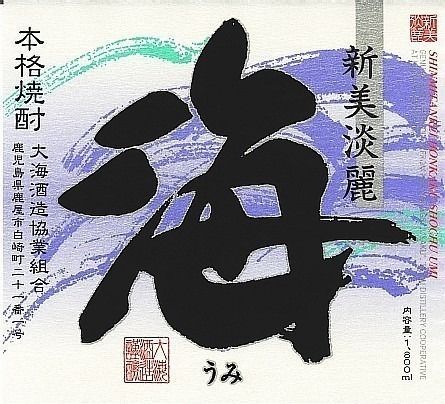 新美
淡麗
SHINBITANREI HONKAKU SHOCHU UMI
DISTILLERY COOPERATIVE
内容量:1,800ml
新美淡麗
海
うみ
本格焼酎
大海酒造協業組合
鹿児島県鹿屋市白崎町二十一番一号